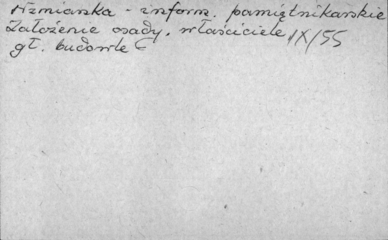 Aźmianka - inform. pamiętnikarskie
Założenie osady, właściciele IX/55
gł. budowle